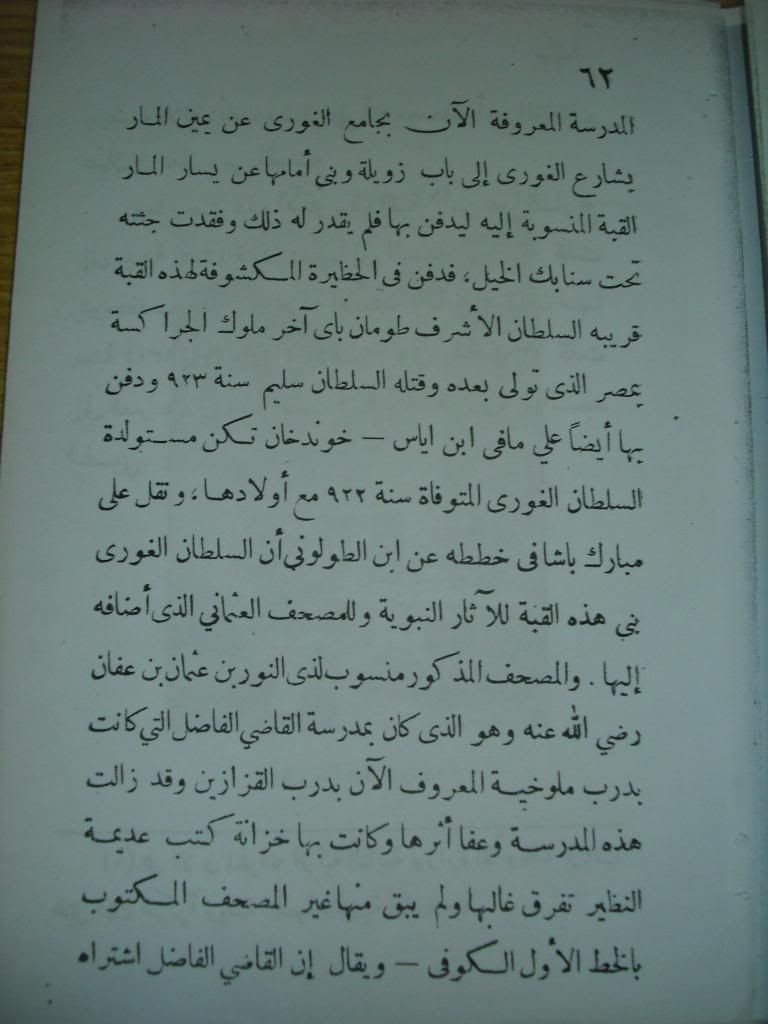 ٦٢
المدرسة المعروفة الآن بجامع الغورى عن يمين المار
بشارع الغورى إلى باب زويلة وبنى أمامها عن يسار المار
القبة المنسوبة إليه ليدفن بها فلم يقدر له ذلك وفقدت جثته
تحت سنابك الخيل، فدفن فى الحظيرة المكشوفة لهذه القبة
قريبه السلطان الأشرف طومان باى آخر ملوك الجراكسة
بمصر الذى تولى بعده وقتله السلطان سليم سنة ٩٢٣ ودفن
بها أيضاً علي مافى ابن اياس — خوندخان تكن مستولدة
السلطان الغورى المتوفاة سنة ٩٢٢ مع أولادها، ونقل على
مبارك باشا فى خططه عن ابن الطولوني أن السلطان الغورى
بني هذه القبة للآثار النبوية وللمصحف العثماني الذى أضافه
إليها. والمصحف المذكور منسوب لذى النورين عثمان بن عفان
رضي الله عنه وهو الذى كان بمدرسة القاضي الفاضل التي كانت
بدرب ملوخية المعروف الآن بدرب القزازين وقد زالت
هذه المدرسة وعفا أثرها وكانت بها خزانة كتب عديمة
النظير تفرق غالبها ولم يبق منها غير المصحف المكتوب
بالخط الأول الكوفى — ويقال إن القاضي الفاضل اشتراه